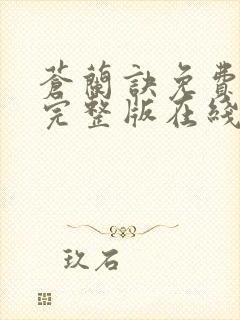 蒼蘭訣免費
完整版在綫
玖石